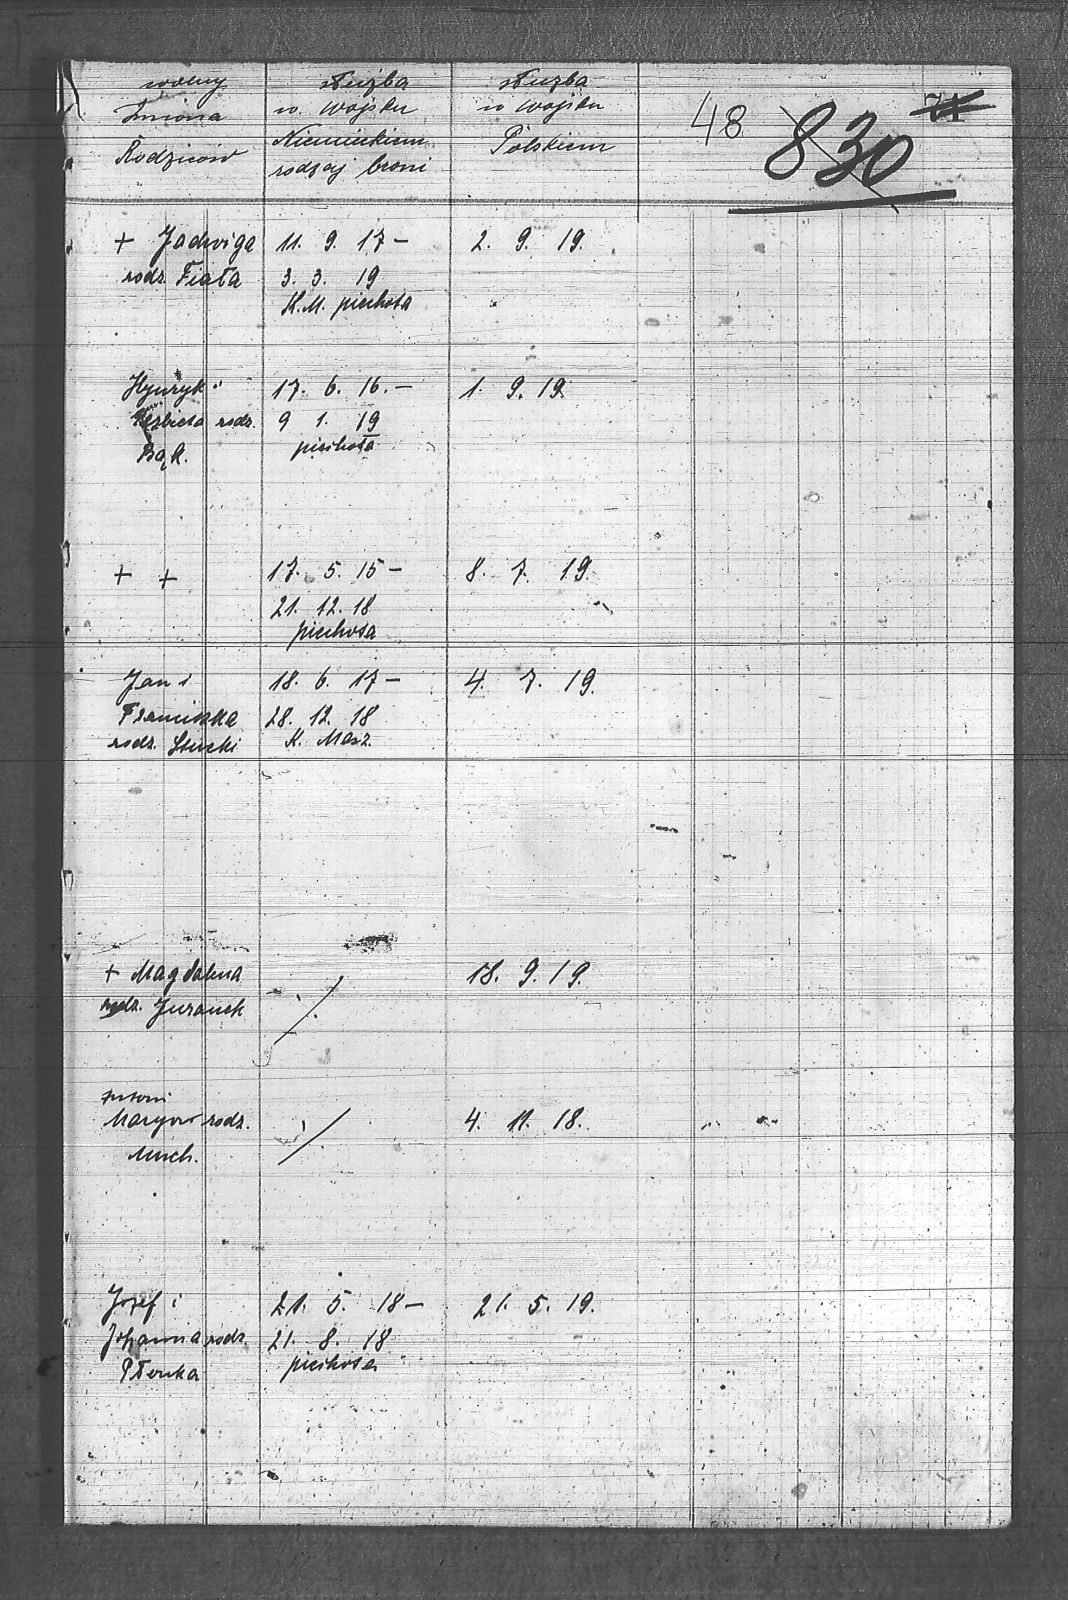 wolny
Imiona
Rodziców
służba
w. wojsku
Niemieckiem
rodzaj broni
służba
w wojsku
Polskiem
48
830
71
+ Jadwiga
rodz. Fiała
11. 9. 17 –
3. 3. 19
K.M. piechota
2. 9. 19.
Hynryk i
Elżbieta rodz.
Bąk.
17. 6. 16. –
9 1. 19
piechota
1. 9. 19.
+ +
17. 5. 15 –
21. 12. 18
piechota
8. 7. 19.
Jan i
Franciszka
rodz.
18. 6. 17 –
28. 12. 18
K. Masz.
4. 7. 19.
+ Magdalena
rodz. Juranek
18. 9. 19.
Antoni
rodz.
Much.
4. 11. 18.
Jozef i
Johanna rodz.
Płonka
21. 5. 18 –
21. 8. 18
piechota
21. 5. 19.